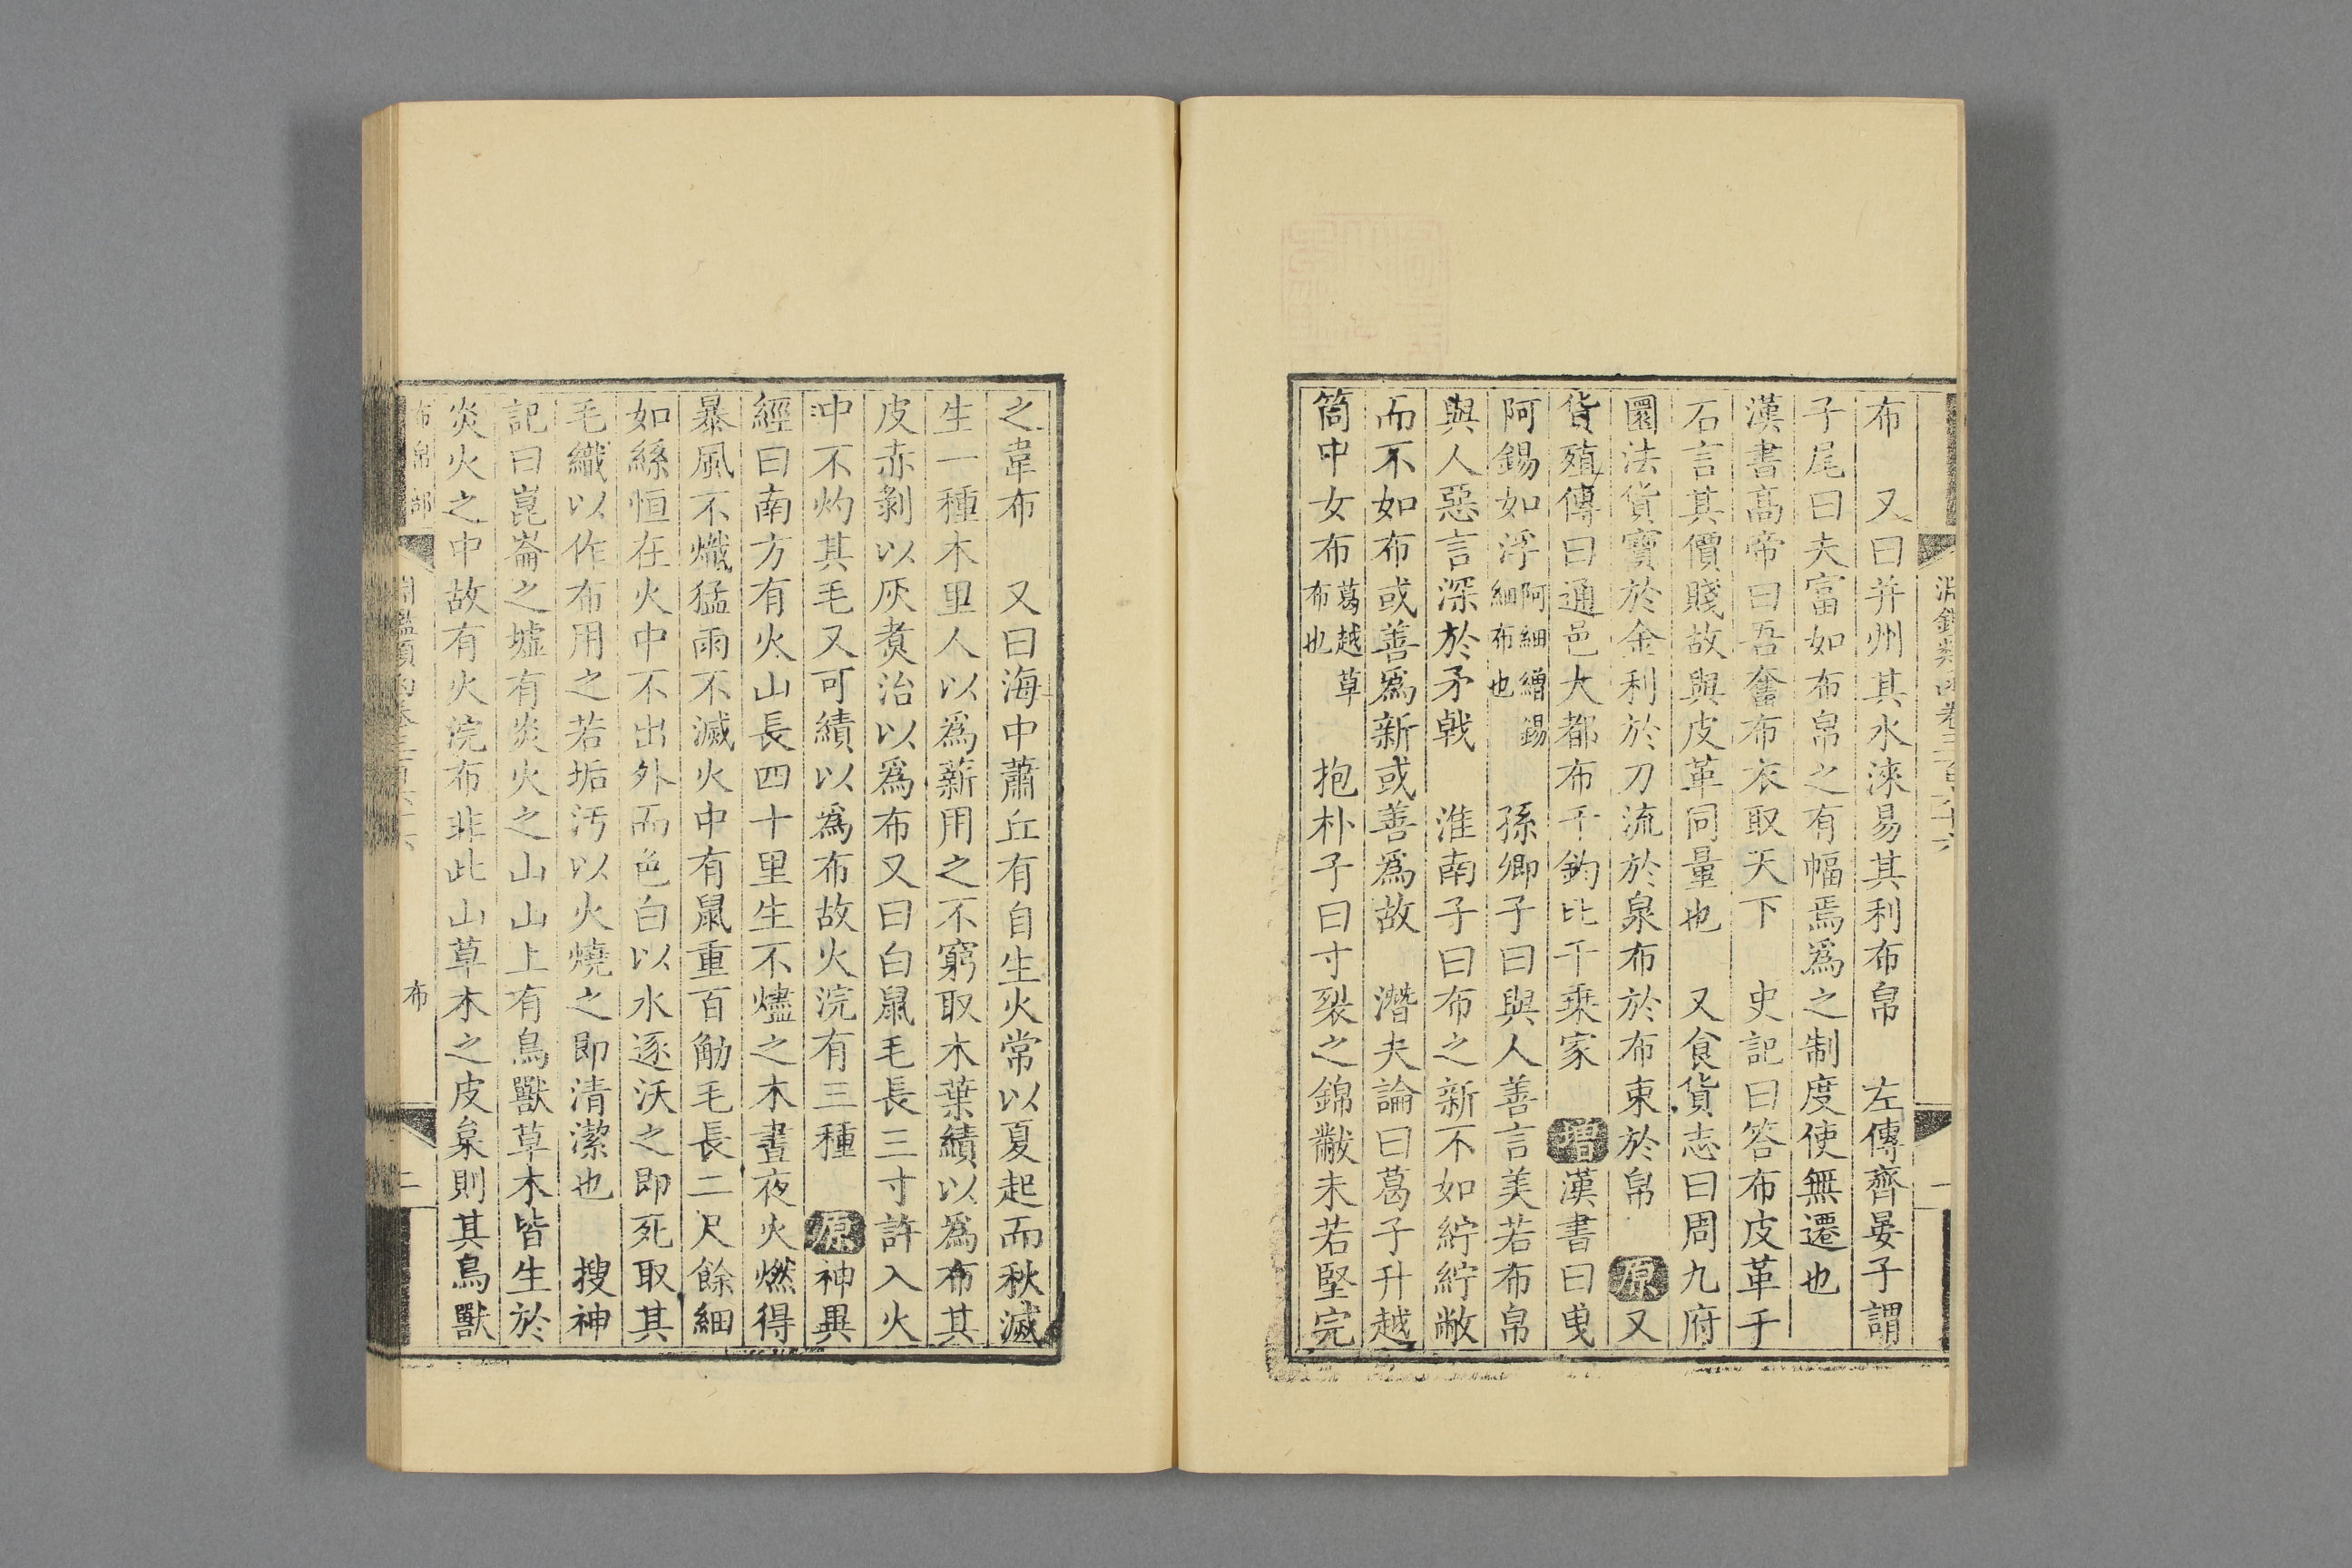 布　又曰并州其水淶易其利布帛　左傳齊晏子謂
子尾曰夫富如布帛之有幅焉爲之制度使無遷也
漢書高帝曰吾奮布衣取天下　史記曰答布皮革千
石言其價賤故與皮革同量也　又食貨志曰周九府
圜法貨寶於金利於刀流於泉布於布束於帛　原又
貨殖傳曰通邑大都布千鈞比千乗家　增漢書曰曳
阿錫如浮阿細繒錫細布也　孫卿子曰與人善言美若布帛
與人惡言深於矛戟　淮南子曰布之新不如紵紵敝
而不如布或善爲新或善爲故　潛夫論曰葛子升越
筒中女布葛越草布也　抱朴子曰寸裂之錦黻未若堅完
之韋布　又曰海中蕭丘有自生火常以夏起而秋滅
生一種木里人以爲薪用之不窮取木葉績以爲布其
皮赤剝以灰煮治以爲布又曰白鼠毛長三寸許入火
中不灼其毛又可績以爲布故火浣有三種　原神異
經曰南方有火山長四十里生不燼之木晝夜火燃得
暴風不熾猛雨不滅火中有鼠重百觔毛長二尺餘細
如絲恒在火中不出外而色白以水逐沃之即死取其
毛織以作布用之若垢汚以火燒之即清潔也　搜神
記曰崑崙之墟有炎火之山山上有鳥獸草木皆生於
炎火之中故有火浣布非此山草木之皮枲則其鳥獸
布帛部
布
二